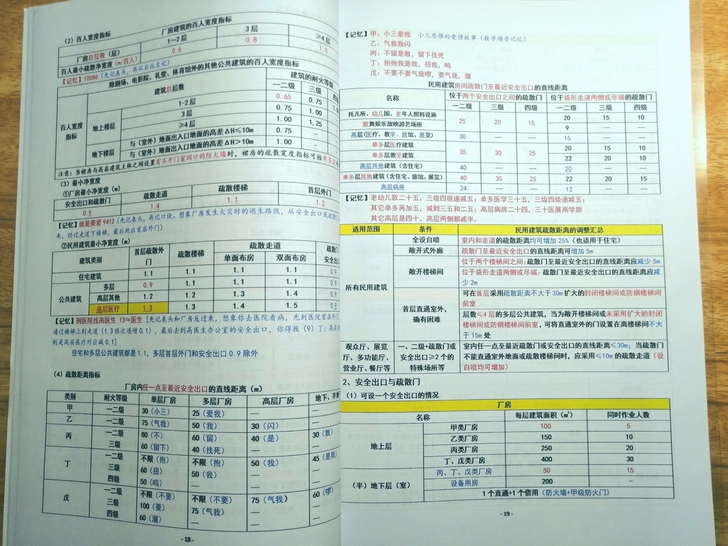 （2）百人宽度指标
厂房建筑的百人宽度指标
厂房总层数（层） 1～2层 3层 ≥4层
百人最小疏散净宽度（m/百人） 0.6 0.8 1.0
【记忆】10086（先记表头，再从右往左记）
除剧场、电影院、礼堂、体育馆外的其他公共建筑的百人宽度指标
建筑总层数 建筑的耐火等级
一二级 三级 四级
百人宽度指标 地上楼层 1-2层 0.65 0.75 1.00
3层 0.75 1.00
≥4层 1.00 1.25
地下楼层 与（室外）地面出入口地面的高差ΔH≤10m 0.75
与（室外）地面出入口地面的高差ΔH>10m 1.00
（3）最小净宽度
①厂房最小净宽度（m）
疏散走道 疏散楼梯 首层外门
安全出口和疏散门
0.9 1.4 1.1 1.2
【记忆】就是要爱9412
②民用建筑最小净宽度（m）
建筑类别 首层疏散外门 疏散楼梯 疏散走道
单面布房 双面布房
住宅建筑 1.1 1.1 1.1 1.1
公共建筑 多层 0.9 1.1 1.1 1.1
高层其他 1.2 1.2 1.3 1.4
高层医疗 1.3 1.3 1.4 1.5
住宅和多层公共建筑都是1.1，多层首层外门和安全出口0.9除外
（4）疏散距离指标
厂房内任一点至最近安全出口的直线距离（m）
类别 耐火等级 单层厂房 多层厂房 高层厂房 地下、半
甲 一二级 30（小三） 25（爱我） —
乙 一二级 75（气我） 50（我） 30（闪）
丙 一二级 80（不） 60（留） 40（是） 30（散）
三级 60（留下） 40（找死） —
丁 一二级 不限（抱） 不限（抱） 50（我） 45（是我）
三级 60（扭） 50（我） —
四级 50（呜） — —
戊 一二级 不限（不要） 不限（不要） 75（气我） 60（啰）
三级 100（要） 75（气我） —
四级 60（遛） — —
- 18 -
【记忆】甲：小三爱我 小三悲催的爱情故事（数字谐音记忆）
乙：气我我闪
丙：不留是散，留下找死
丁：抱抱我是我，扭我，呜
戊：不要不要气我啰，要气我，遛
民用建筑房间疏散门至最近安全出口的直线距离
名称 位于两个安全出口之间的疏散门 位于袋形走道两侧或尽端的疏散门
一二级 三级 四级 一二级 三级 四级
托儿所、幼儿园、老年人照料设施 25 20 15 20 15 10
歌舞娱乐放映游艺场所 9 — —
高层（医疗、教学、旅馆、展览） 30 — — 15 — —
单多层医疗建筑 35 30 25 20 15 10
单多层教学建筑 22 20 10
高层其他建筑（含住宅） 40 — — 20 — —
单多层其他建筑（含住宅） 40 35 25 22 20 15
高层病房 24 — — 12 — —
【记忆】老幼儿歌二十五，三级四级递减五；单多医学三十五，三级四级递减五；
其它单多再加五，减到三五和二五；高层病房二十四，三十医展高学旅
其它高层是四十，高层两侧都减半。
适用范围 条件 民用建筑疏散距离的调整汇总
所有民用建筑 全设自喷 室内和走道的疏散距离均可增加25%（也适用于住宅）
敞开式外廊 疏散门至最近安全出口的直线距离可增加5m
敞开楼梯间 位于两个楼梯间之间：疏散门至最近安全出口的直线距离应减少5m
位于袋形走道两侧或尽端：疏散门至最近安全出口的直线距离应减少2m
首层直通室外，确有困难 可在首层采用疏散距离不大于30m扩大的封闭楼梯间或防烟楼梯间前室
层数≤4层的多层公共建筑，当为敞开楼梯间或未采用扩大的封闭楼梯间或防烟楼梯间前室，可将直通室外的门设置在离楼梯间不大于15m处
观众厅、展览厅、多功能厅、营业厅、餐厅等 一、二级+疏散门或安全出口≥2个的特殊场所等 室内任一点至最近疏散门或安全出口的直线距离≤30m；当疏散门不能直通室外地面或疏散楼梯间时，应采用≤10m的疏散走道（设自喷均可增加）
2、安全出口与疏散门
（1）可设一个安全出口的情况
厂房
名称 每层建筑面积（m²） 同时作业人数
地上层 甲类厂房 100 5
乙类厂房 150 10
丙类厂房 250 20
丁、戊类厂房 400 30
（半）地下层（室） 丙、丁、戊类厂房 50 15
设备用房 200 -
1个直通+1个借用（防火墙+甲级防火门）
- 19 -